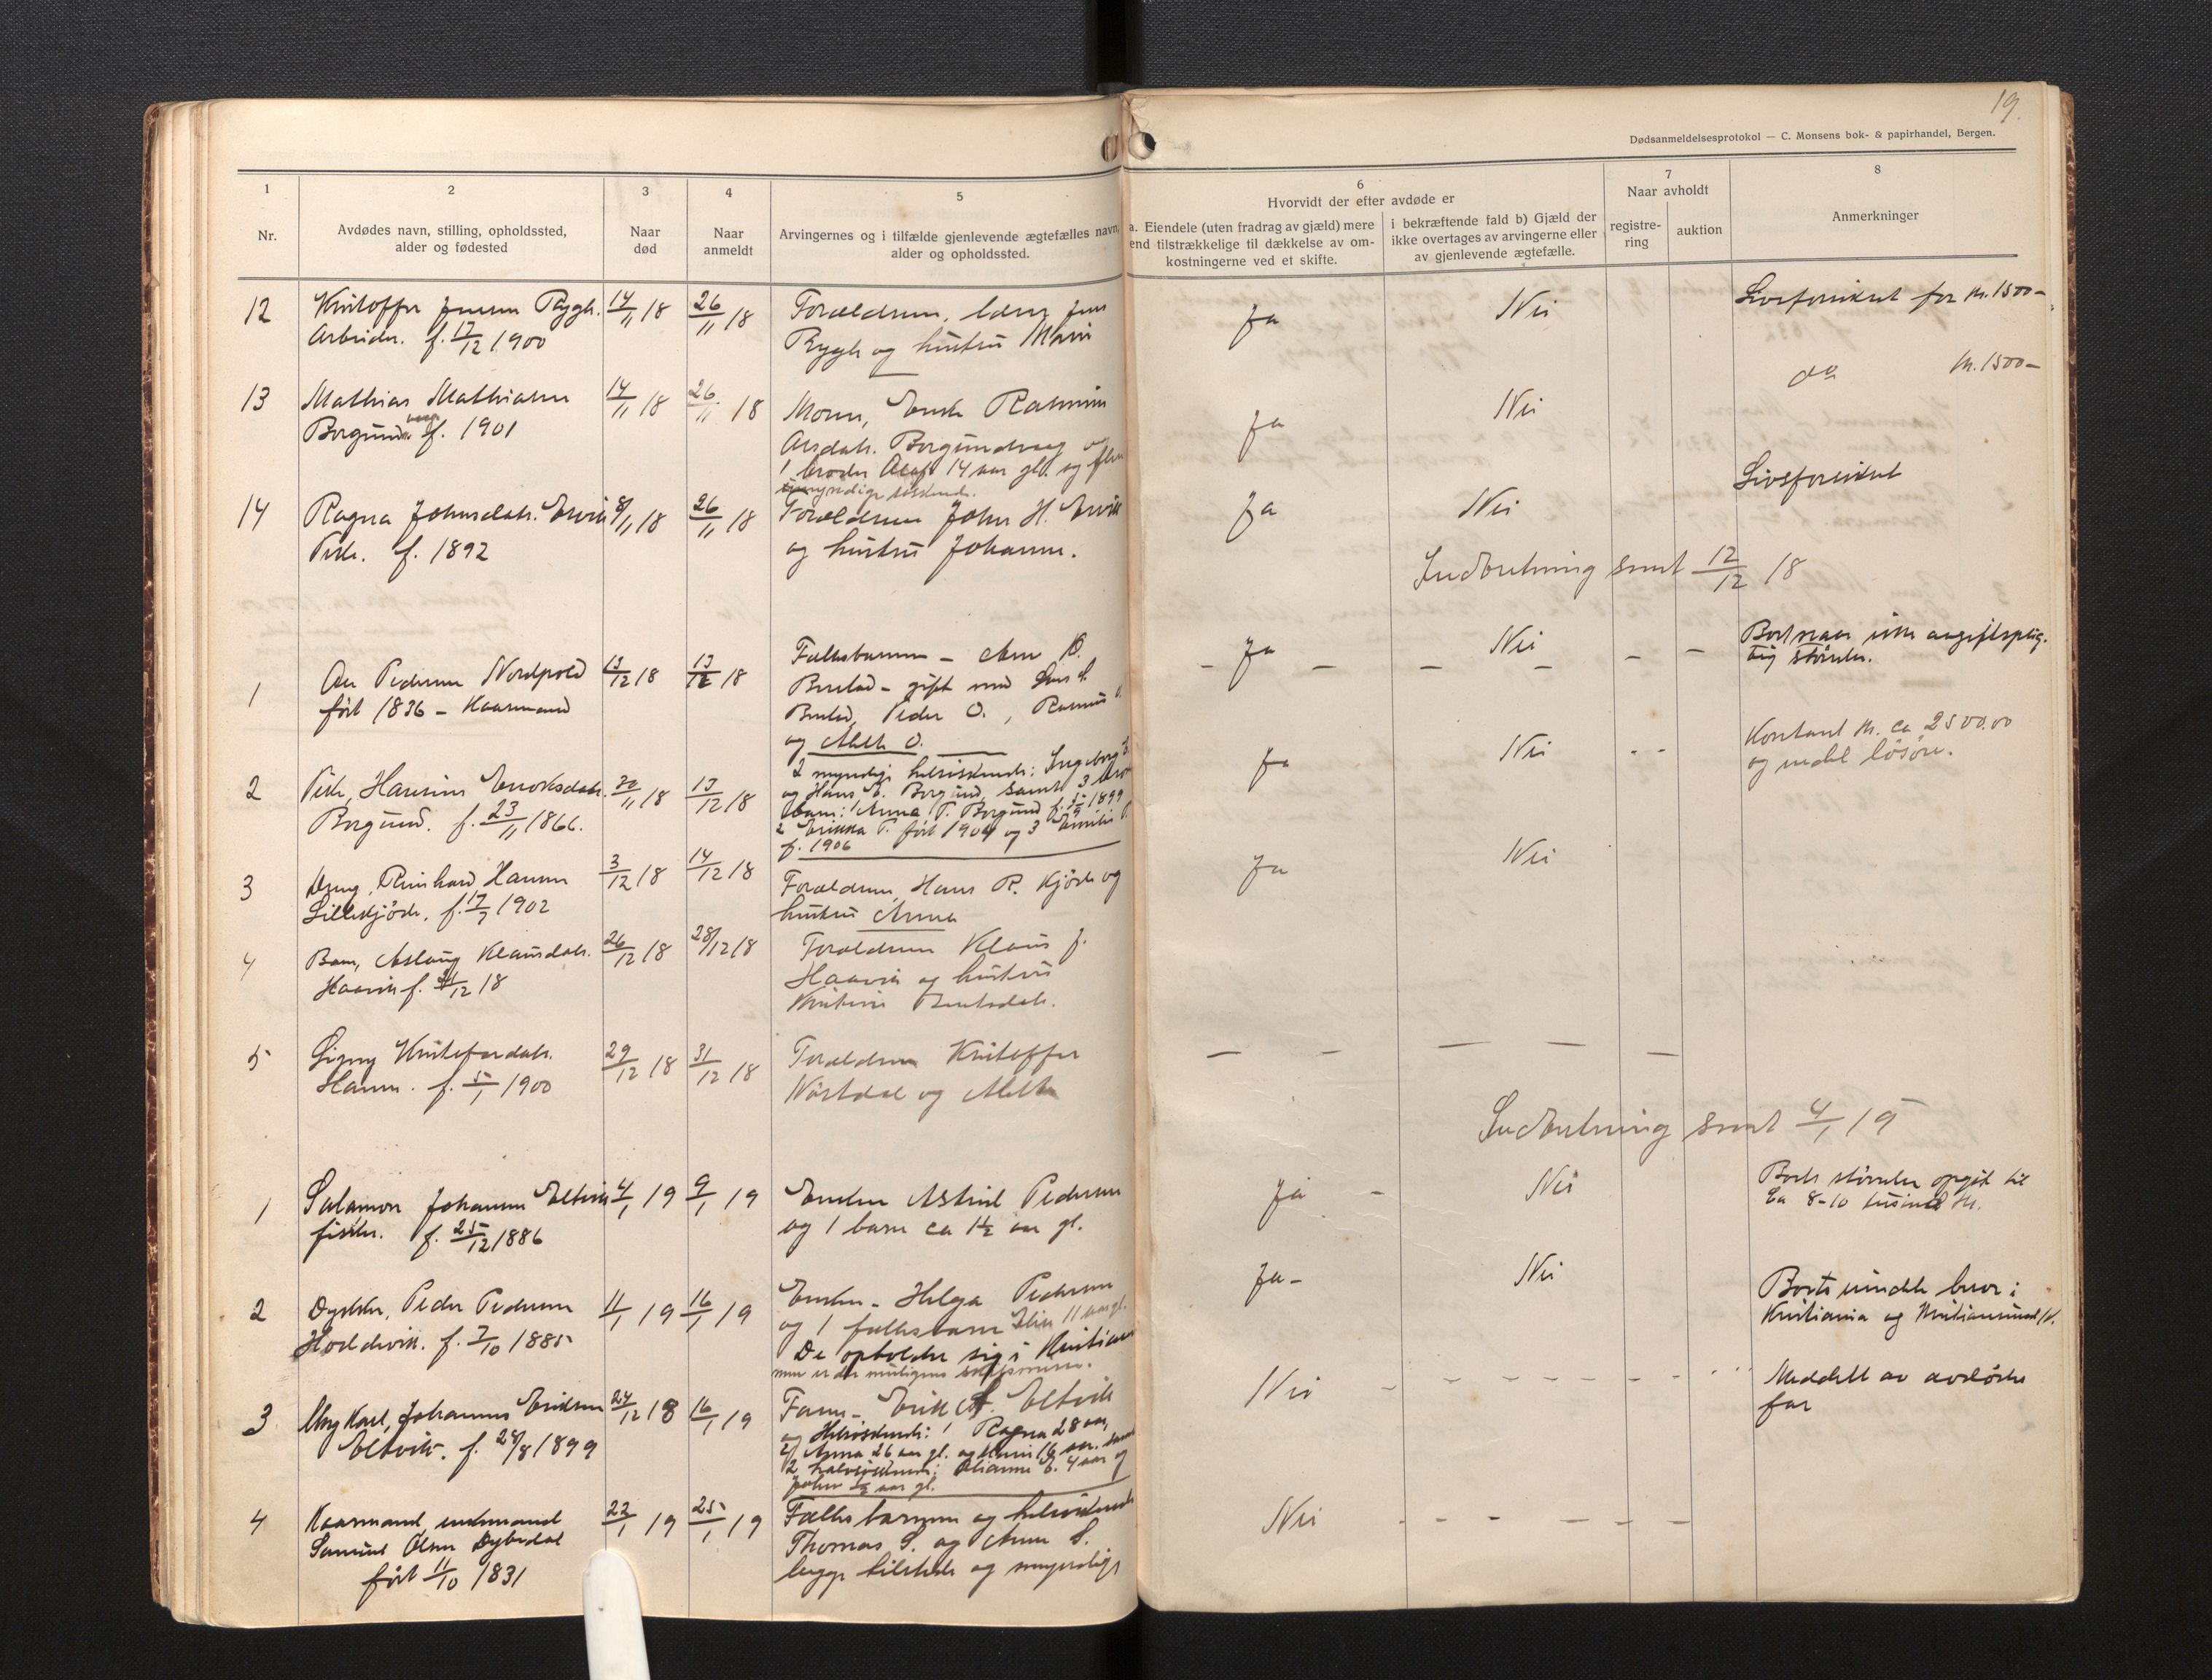 19.
Dødsanmeldelsesprotokol — C. Monsens bok- & papirhandel, Bergen.
1
Nr.
2
Avdødes navn, stilling, opholdssted,
alder og fødested
3
Naar
død
4
Naar
anmeldt
5
Arvingernes og i tilfælde gjenlevende ægtefælles navn,
alder og opholdssted.
6
Hvorvidt der efter avdøde er
a. Eiendele (uten fradrag av gjæld) mere
end tilstrækkelige til dækkelse av om-
kostningerne ved et skifte.
i bekræftende fald b) Gjæld der
ikke overtages av arvingerne eller
av gjenlevende ægtefælle.
7
Naar avholdt
registre-
ring
auktion
8
Anmerkninger
12
Kristoffer Jensen Rygh.
Arbeider. f. 17/12 1900
14/11 18
26/11 18
Forældrene, lærer Jens
Rygh og hustru Marie
Ja
Nei
Livsforsikret for kr. 1500-
13
Mathias Mathiasen
Borgund f. 1901
14/11 18
26/11 18
Moren, Enke Rasmine
Borgundvaag og
1 broder Olaf 14 aar gl. og flere
umyndige søskende.
Ja
Nei
do kr. 1500-
14
Ragna Johnsdatr. Ervik
Pike. f. 1892
8/11 18
26/11 18
Forældrene John H. Ervik
og hustru Johanne.
Ja
Nei
Livsforsikret
Indberetning sendt 12/12 18
1
Ole Pedersen Nordpold
født 1836 - Kaarmand
13/12 18
13/12 18
Fællesbarnen - Anne O.
gift med
Peder O., Rasmus O.
og Mette O.
- Ja - - Nei - - -
Boet neppe avgiftsplig-
tig størrelse.
2
Pike, Hansine Enoksdatr.
Borgund. f. 23/11 1866.
30/11 18
13/12 18
2 myndige helsøskende: Ingeborg E.
og Hans E. Borgund, samt 3 bror
barn: 1 Anna T. Borgund f. 1899
2 Erikka T. født 1904 og 3 Emilie T.
f. 1906
Ja
Nei
- -
Kontant kr. ca 2500.00
og endel løsøre.
3
Dreng, Reinhard Hansen
Lillekjøde. f. 17/7 1902
3/12 18
14/12 18
Forældrene, Hans R. Kjøde og
hustru Anna
Ja
Nei
4
Barn, Aslaug Klausdatr.
Haavik f. /12 18
26/12 18
28/12 18
Forældrene Klaus J.
Haavik og hustru
Kristine Berntsdatr.
5
Signy Kristofersdatr.
Hamre. f. 5/1 1900
29/12 18
31/12 18
Forældrene Kristoffer
Nørstdal og Mette
— — — — —
Indberetning sendt 4/1 19
1
Salamon Johansen Eltvik
fisker. f. 25/12 1886
4/1 19
9/1 19
Enken Astrid Pedersen
og 1 barn ca 1½ aar gl.
Ja -
Nei
Boets størrelse opgit til
ca 8-10 tusinde kr.
2
Dykker, Peder Pedersen
Hoddevik. f. 7/10 1885
11/1 19
16/1 19
Enken - Helga Pedersen
og 1 fællesbarn Elise 11 aar gl.
De opholder sig i Kristiania
men er der muligens
Ja -
Nei
Boets midler beror i
Kristiania og Kristiansund N.
3
Ung Karl, Johannes Eriksen
Eltvik. f. 28/8 1899
24/12 18
16/1 19
Faren - Erik A. Eltvik
og Helsøskende: 1 Ragna 28 aar,
2/ Anna 26 aar gl. og Marie 16 aar. samt
2 halvsøskende: Olianne E. 4 aar og
Johan ½ aar gl.
Nei - - - - - - -
Meddelt av avdødes
far
4
Kaarmand, enkemand
Samuel Olsen Dybedal
født 11/10 1831
22/1 19
25/1 19
Fælles barnen og helsøskende
Thomas S. og Anne S.
begge tilstede og myndige
Nei - - - - - -